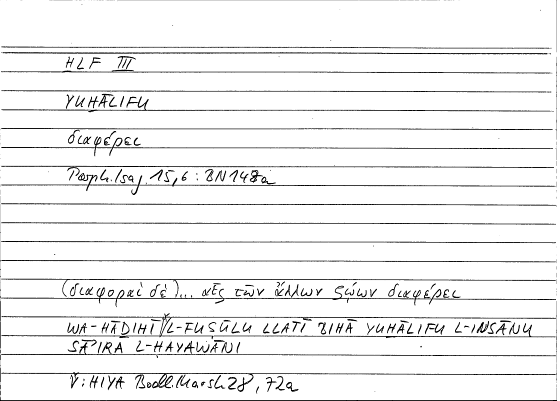 ḪLF III
YUḪĀLIFU
διαφέρει
Porph. Isag. 15,6 : BN 148a
(διαφοραὶ δὲ)... αἷς τῶν ἄλλων ζῴων διαφέρει
WA-HĀḎIHĪ ᵛL-FUṢŪLU LLATĪ BIHĀ YUḪĀLIFU L-INSĀNU
SĀʾIRA L-ḤAYAWĀNI
v : HIYA Bodl. Marsh 28, 72a